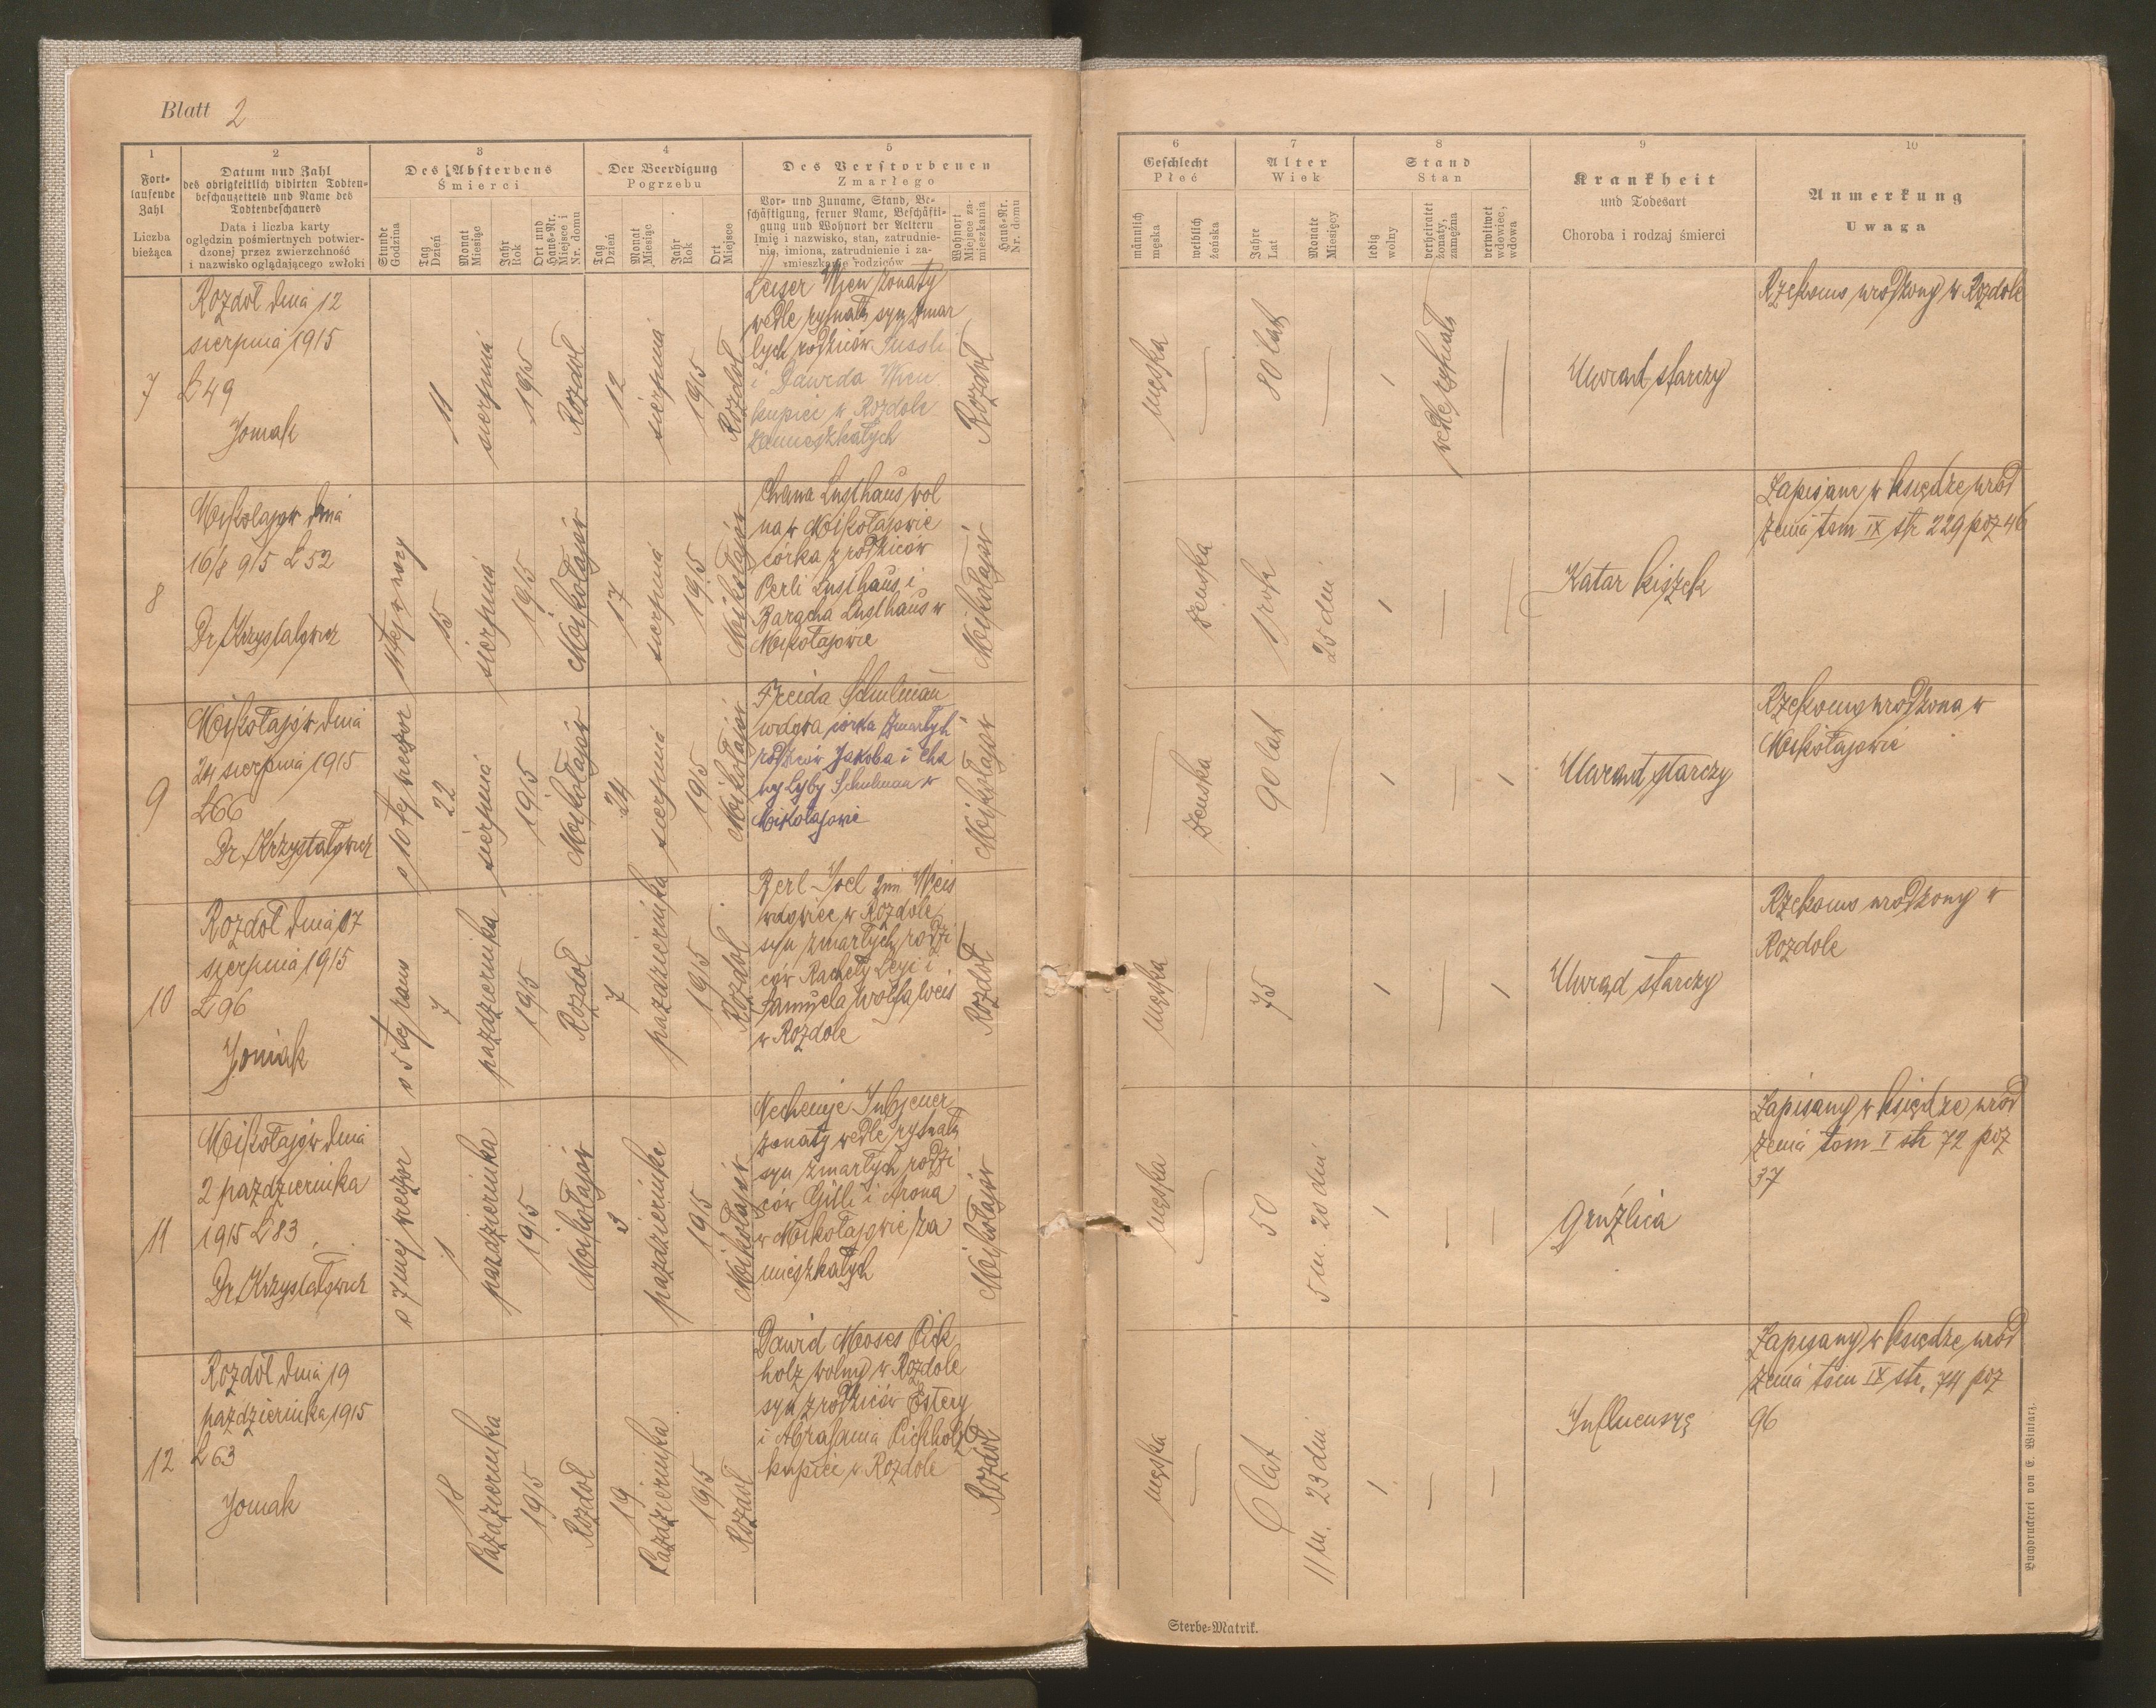 Blatt 2
1
Fort-
laufende
Zahl
Liczba
bieżąca
2
Datum und Zahl
des obrigkeitlich vidirten Todten-
beschauzettels und Name des
Todtenbeschauers
Data i liczba karty
oględzin pośmiertnych potwier-
dzonej przez zwierzchność
i nazwisko oglądającego zwłoki
3
Des Absterbens
Śmierci
Stunde
Godzina
Tag
Dzień
Monat
Miesiąc
Jahr
Rok
Ort und
Haus-Nr.
Miejsce i
Nr. domu
4
Der Beerdigung
Pogrzebu
Tag
Dzień
Monat
Miesiąc
Jahr
Rok
Ort
Miejsce
5
Des Verstorbenen
Zmarłego
Vor- und Zuname, Stand, Be-
schäftigung, ferner Name, Beschäfti-
gung und Wohnort der Aeltern
Imię i nazwisko, stan, zatrudnie-
nie, imiona, zatrudnienie i za-
mieszkanie rodziców
Wohnort
Miejsce za-
mieszkania
Haus-Nr.
Nr. domu
6
Geschlecht
Płeć
männlich
męska
weiblich
żeńska
7
Alter
Wiek
Jahre
Lat
Monate
Miesięcy
8
Stand
Stan
ledig
wolny
verheiratet
żonaty,
zamężna
verwitwet
wdowiec,
wdowa
9
Krankheit
und Todesart
Choroba i rodzaj śmierci
10
Anmerkung
Uwaga
7
Rozdół dnia 12
sierpnia 1915
L 49
11
sierpnia
1915
Rozdół
12
sierpnia
1915
Rozdół
Leiser Wien żonaty
wedle rytuału syn zmar
łych rodziców
i Dawida Wien
kupiec w Rozdole
zamieszkałych
Rozdół
męska
80 lat
wedle rytuału
Uwiąd starczy
Rzekomo urodzony w Rozdole
8
Mikołajów dnia
16/8 915 L 52
Dr Krzyształowicz
11tej w nocy
15
sierpnia
1915
Mikołajów
17
sierpnia
1915
Mikołajów
Chawa Lusthaus wol
na w Mikołajowie
córka z rodziców
Perli Lusthaus i
Baracha Lusthaus w
Mikołajowie
Mikołajów
żeńska
1 rok
25 dni
1
Katar kiszek
Zapisana w księdze urod
zenia tom IX str 229 poz 46
9
Mikołajów dnia
24 sierpnia 1915
L 66
Dr Krzyształowicz
o 10tej wieczor
22
sierpnia
1915
Mikołajów
24
sierpnia
1915
Mikołajów
Freida Schulman
wdowa córka zmarłych
rodziców Jakoba i Cha
ny Schulman w
Mikołajowie
Mikołajów
żeńska
90 lat
1
1
Uwiąd starczy
Rzekomo urodzona w
Mikołajowie
10
Rozdół dnia
sierpnia 1915
L 96
o 5tej rano
7
października
1915
Rozdół
7
października
1915
Rozdół
Berl Joel 2im Weis
wdowiec w Rozdole
syn zmarłych rodzi
ców Rachely Leji i
Samuela Wolfa Weis
w Rozdole
Rozdół
męska
75
1
1
Uwiąd starczy
Rzekomo urodzony w
Rozdole
11
Mikołajów dnia
2 października
1915 L 83
Dr Krzyształowicz
o 7mej wieczor
1
października
1915
Mikołajów
3
października
1915
Mikołajów
żonaty wedle rytuału
syn zmarłych rodzi
ców Gitli i Arona
w Mikołajowie za
mieszkałych
Mikołajów
męska
50
5 m. 20 dni
1
Gruźlica
Zapisany w księdze urod
zenia tom I str 72 poz
37
12
Rozdół dnia 19
października 1915
L 63
18
Października
1915
Rozdół
19
Października
1915
Rozdół
Dawid Moses Pick
holz wolny w Rozdole
syn z rodziców Estery
i Abrahama Pickholz
kupiec w Rozdole
Rozdół
męska
6 lat
11 m. 23 dni
1
Zapisany w księdze urod
zenia tom IX str. 74 poz
96
Sterbe-Matrik.
Buchdruckerei von E. Winiarz.